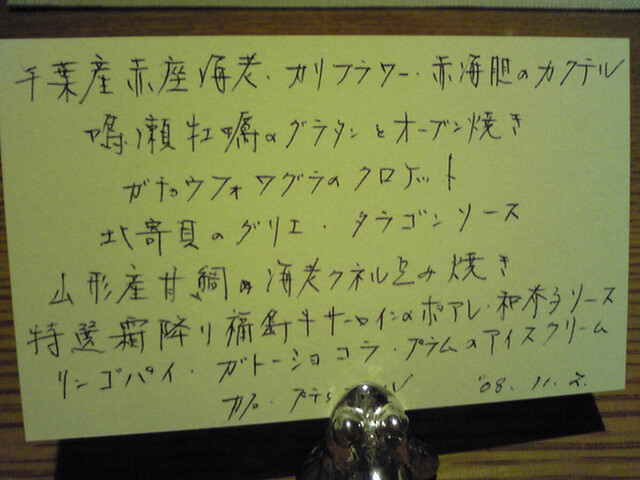 千葉産赤座海老・カリフラワー・赤海胆のカクテル
鳴瀬牡蠣のグラタンとオーブン焼き
ガチョウフォワグラのクロケット
北寄貝のグリエ・タラゴンソース
山形産甘鯛の海老クネル包み焼き
特選霜降り 牛サーロインのポアレ・ ソース
リンゴパイ・ガトーショコラ・プラムのアイスクリーム
'08.11.2.